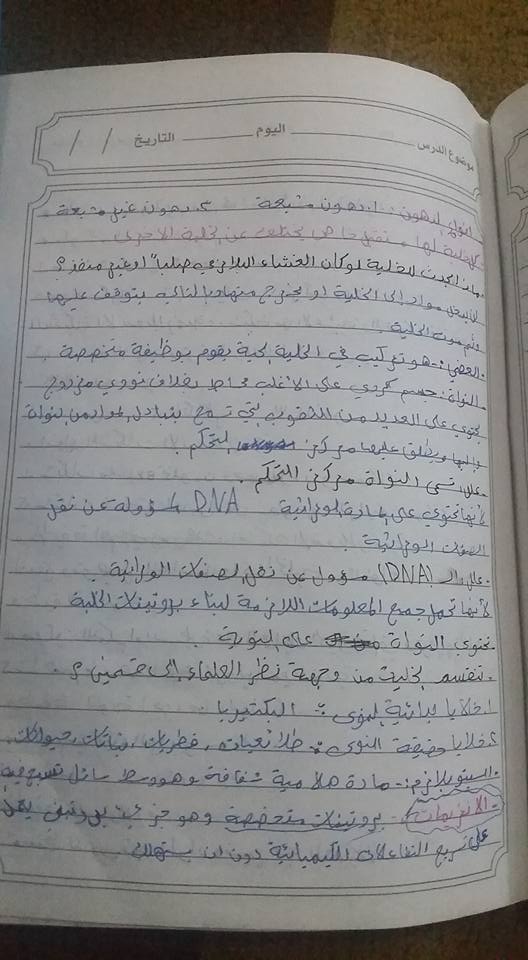 موضوع الدرس ________ اليوم ________ التاريخ / /
أنواع الدهون: ١. دهون مشبعة ٢. دهون غير مشبعة
كل خلية لها تنفيذ خاص يختلف عن الخلية الأخرى.
ماذا يحدث للخلية لو كان الغشاء البلازمي صلباً أو غير منفذ؟
لا يدخل مواد إلى الخلية أو يخرج منها وبالتالي يتوقف عليها
وتموت الخلية
العضي: هو تركيب في الخلية الحية يقوم بوظيفة متخصصة.
النواة: جسم كروي على الأغلب محاط بغلاف نووي مزدوج
يحتوي على العديد من الثقوب التي تسمح بتبادل المواد من النواة
وإليها ويطلق عليها مركز التحكم.
علل: تسمى النواة مركز التحكم.
لأنها تحتوي على المادة الوراثية DNA المسؤولة عن نقل
الصفات الوراثية
علل: الـ (DNA) مسؤول عن نقل الصفات الوراثية.
لأنها تحمل جميع المعلومات اللازمة لبناء بروتينات الخلية
تحتوي النواة على النوية
تنقسم الخلية من وجهة نظر العلماء إلى قسمين؟
١. خلايا بدائية النوى: البكتيريا
٢. خلايا حقيقة النوى: طلائعيات، فطريات، نباتات، حيوانات
السيتوبلازم: مادة هلامية شفافة وهو وسط سائل تسبح فيه
الانزيمات: بروتينات متخصصة وهو جزيء بروتيني يعمل
على تسريع التفاعلات الكيميائية دون أن يستهلك